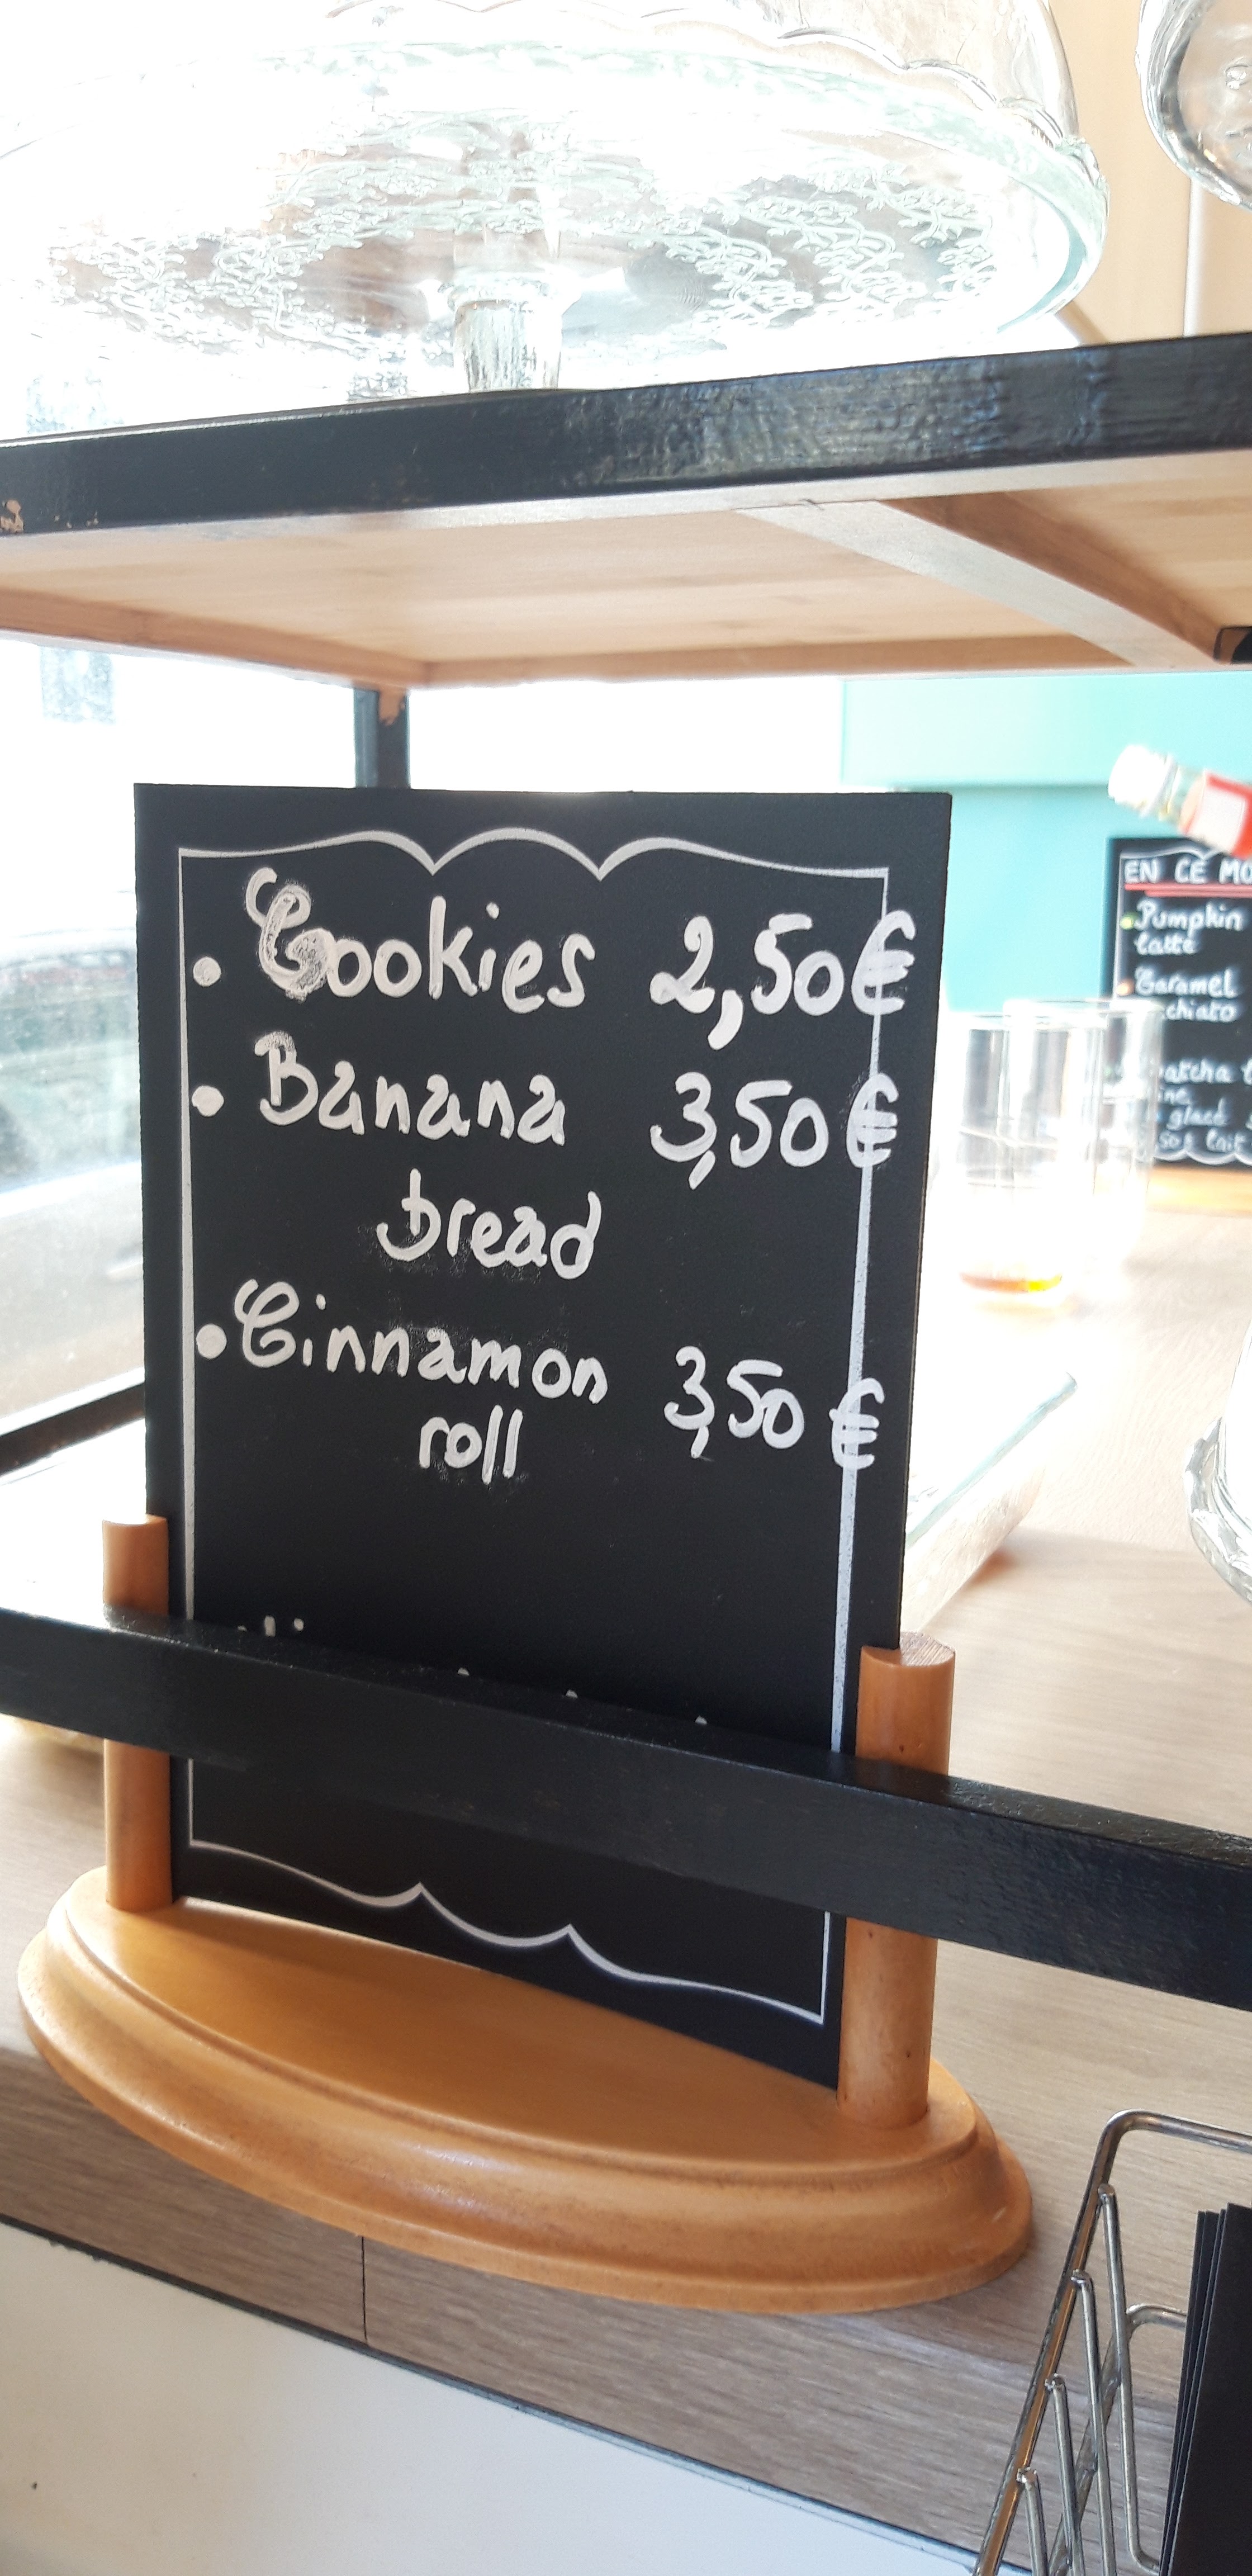 • Cookies 2,50€
• Banana 3,50€
bread
• Cinnamon 3,50€
roll
EN CE MO
Pumpkin
latte
Caramel
chiato
atcha
glacé
lait